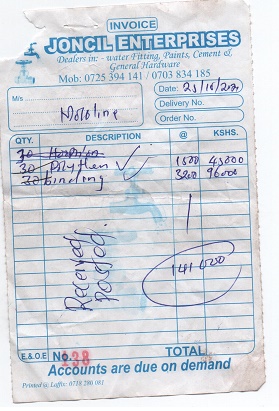 INVOICE
JONCIL ENTERPRISES
Dealers in: - water Fitting, Paints, Cement &
General Hardware
Mob: 0725 394 141 / 0703 834 185
M/s
Date:
Delivery No.
Order No.
QTY. DESCRIPTION @ KSHS.
30 Polythen 1500 45000
30 binding 3200 96000
Received
posted
141000
E.& O.E No. 238 TOTAL
Accounts are due on demand
Printed by Laffix: 0718 286 081